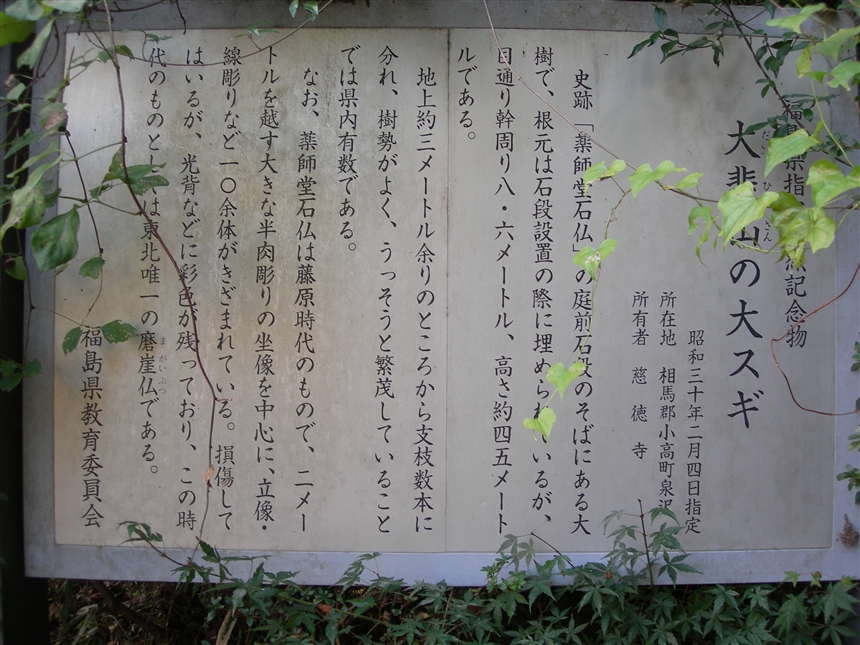 福島県指 記念物
大悲山の大スギ
だい ひ さん
昭和三十年二月四日指定
所在地 相馬郡小高町泉沢
所有者 慈徳寺
史跡「薬師堂石仏」の庭前石段のそばにある大
樹で、根元は石段設置の際に埋められているが、
目通り幹周り八・六メートル、高さ約四五メート
ルである。
地上約三メートル余りのところから支枝数本に
分れ、樹勢がよく、うっそうと繁茂していること
では県内有数である。
なお、薬師堂石仏は藤原時代のもので、二メー
トルを越す大きな半肉彫りの坐像を中心に、立像・
線彫りなど一〇余体がきざまれている。損傷して
はいるが、光背などに彩色が残っており、この時
代のものとしては東北唯一の磨崖仏である。
ま がい ぶつ
福島県教育委員会